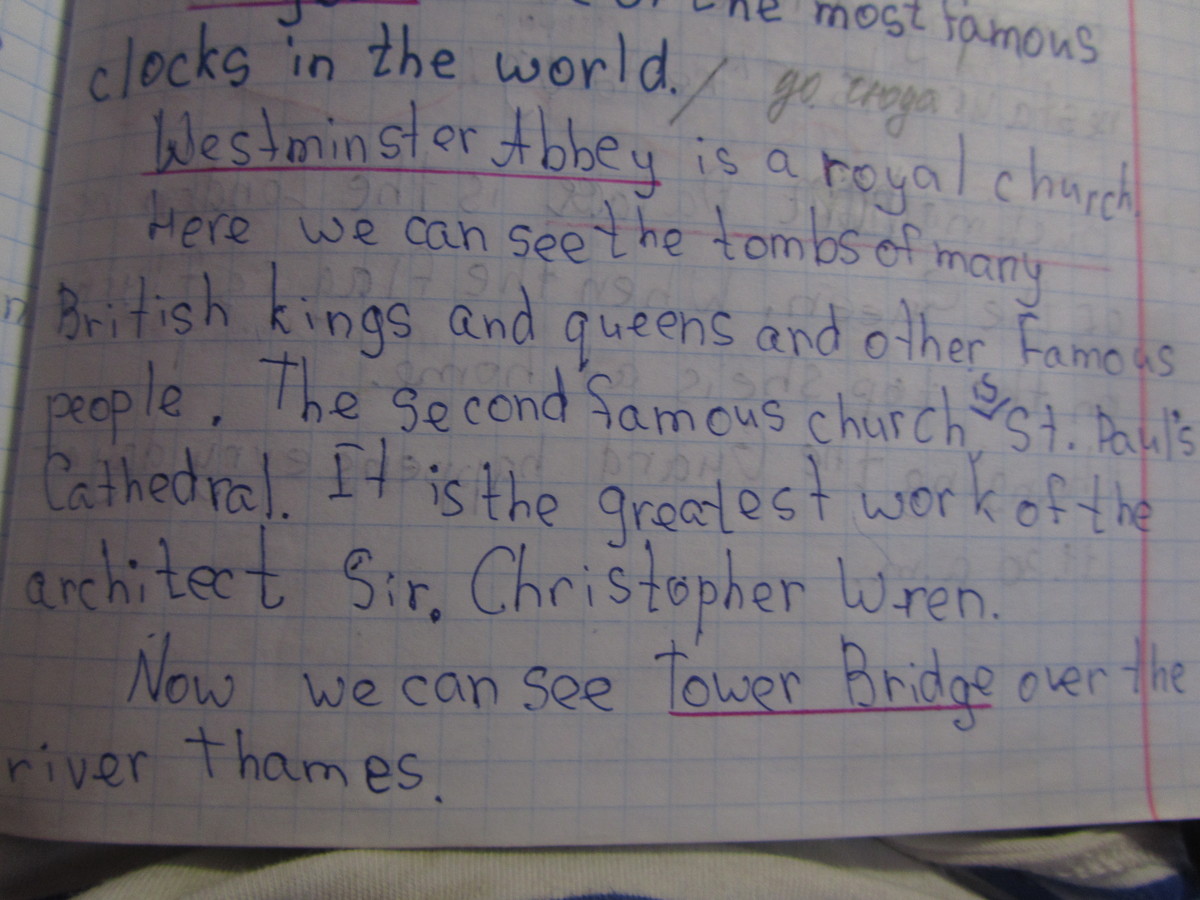 the most famous
clocks in the world./ до сюда
Westminster Abbey is a royal church.
Here we can see the tombs of many
British kings and queens and other famous
people. The second famous church is St. Paul's
Cathedral. It is the greatest work of the
architect Sir. Christopher Wren.
Now we can see Tower Bridge over the
river thames.